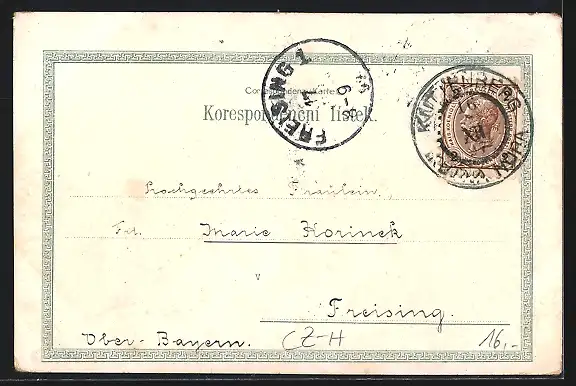 Correspondenz-Karte.
Korespondenční lístek.
FREISING 1
KUTTENBERG
KUTNÁ HORA
Hochgeehrtes Fräulein,
Frl. Marie Horinek
Freising.
Ober-Bayern.
CZ-H 16,-